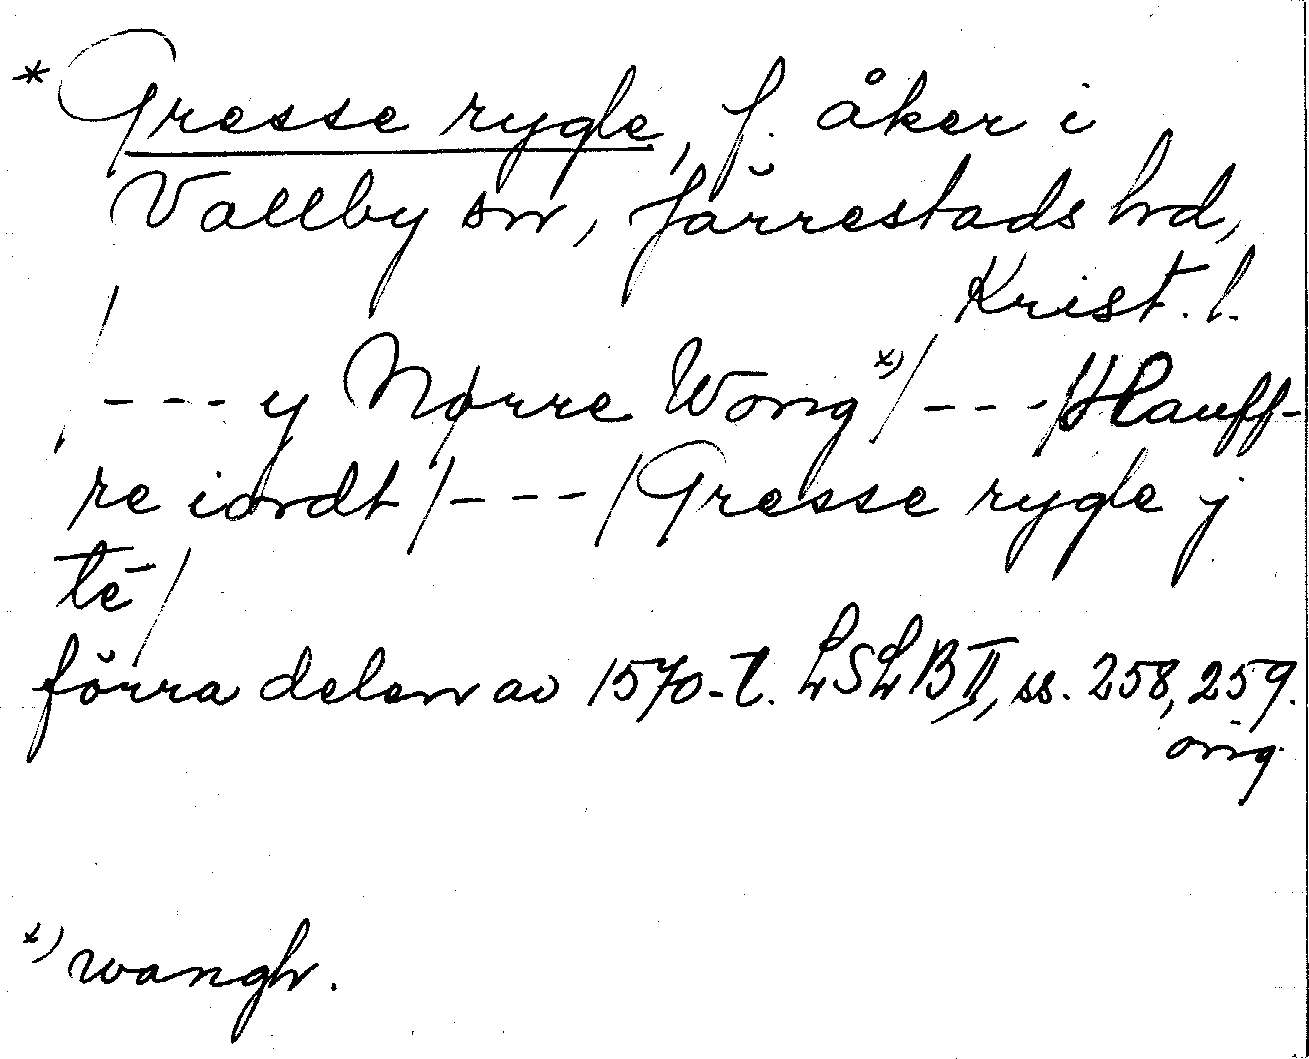 * Gresse rygle, f. åker i
Vallby sn, Järrestads hd,
Krist. l.
/ --- y Nørre Wong *) / --- / Hauff-
re iordt / --- / Gresse rygle j
tē /
förra delen av 1570-t. LSLB II, ss. 258, 259.
orig.
*) wangh.